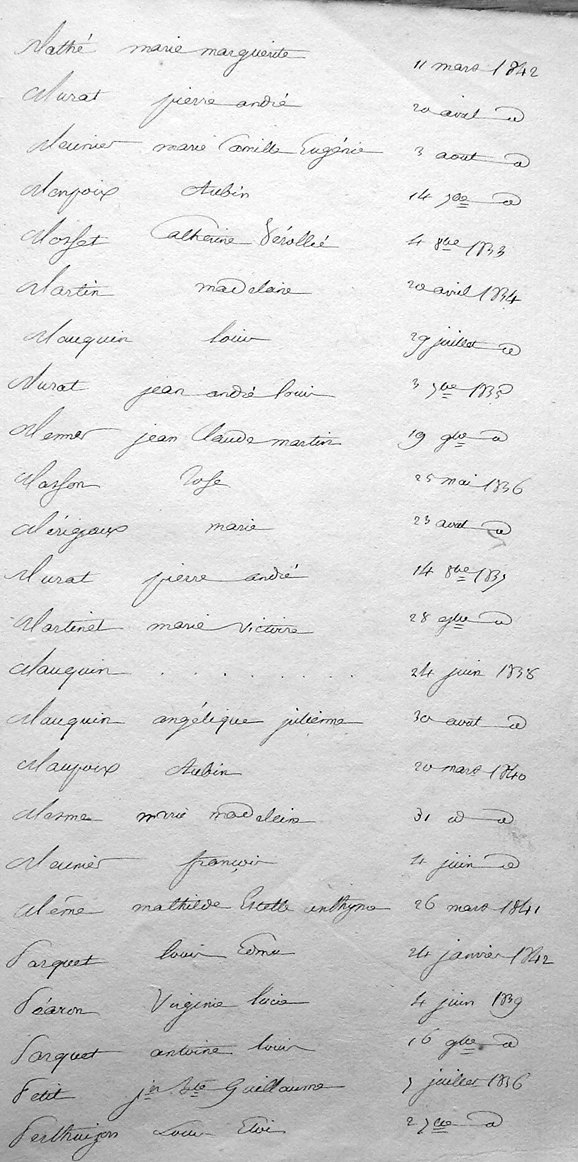 Mathé marie marguerite 11 mars 1842
Murat pierre andré 20 avril d
Meunier marie Camille Eugénie 3 aout d
Monpoix Aubin 14 7bre d
Mosset Catherine 4 8bre 1833
Martin madelaine 20 avril 1834
Mauquin louis 29 juillet d
Murat jean andré louis 3 7bre 1835
jean Claude martin 19 9bre d
Masson Rose 25 mai 1836
Mérigoux marie 23 avril d
Murat pierre andré 14 8bre
Martinet marie Victoire 28 d
Mauquin . . . . . . . . 24 juin 1838
Mauquin angélique julienne 30 aout d
Maupoix Aubin 20 mars 1840
Masme marie madelaine 31 d d
Meunier françois 4 juin d
Mème mathilde Estelle 26 mars 1841
Parquet louis Edme 24 janvier 1842
Péaron Virginie lucie 4 juin 1839
Parquet antoine louis 16 9bre d
Petit jn Bte Guillaume juillet 1836
Louis Eloi d